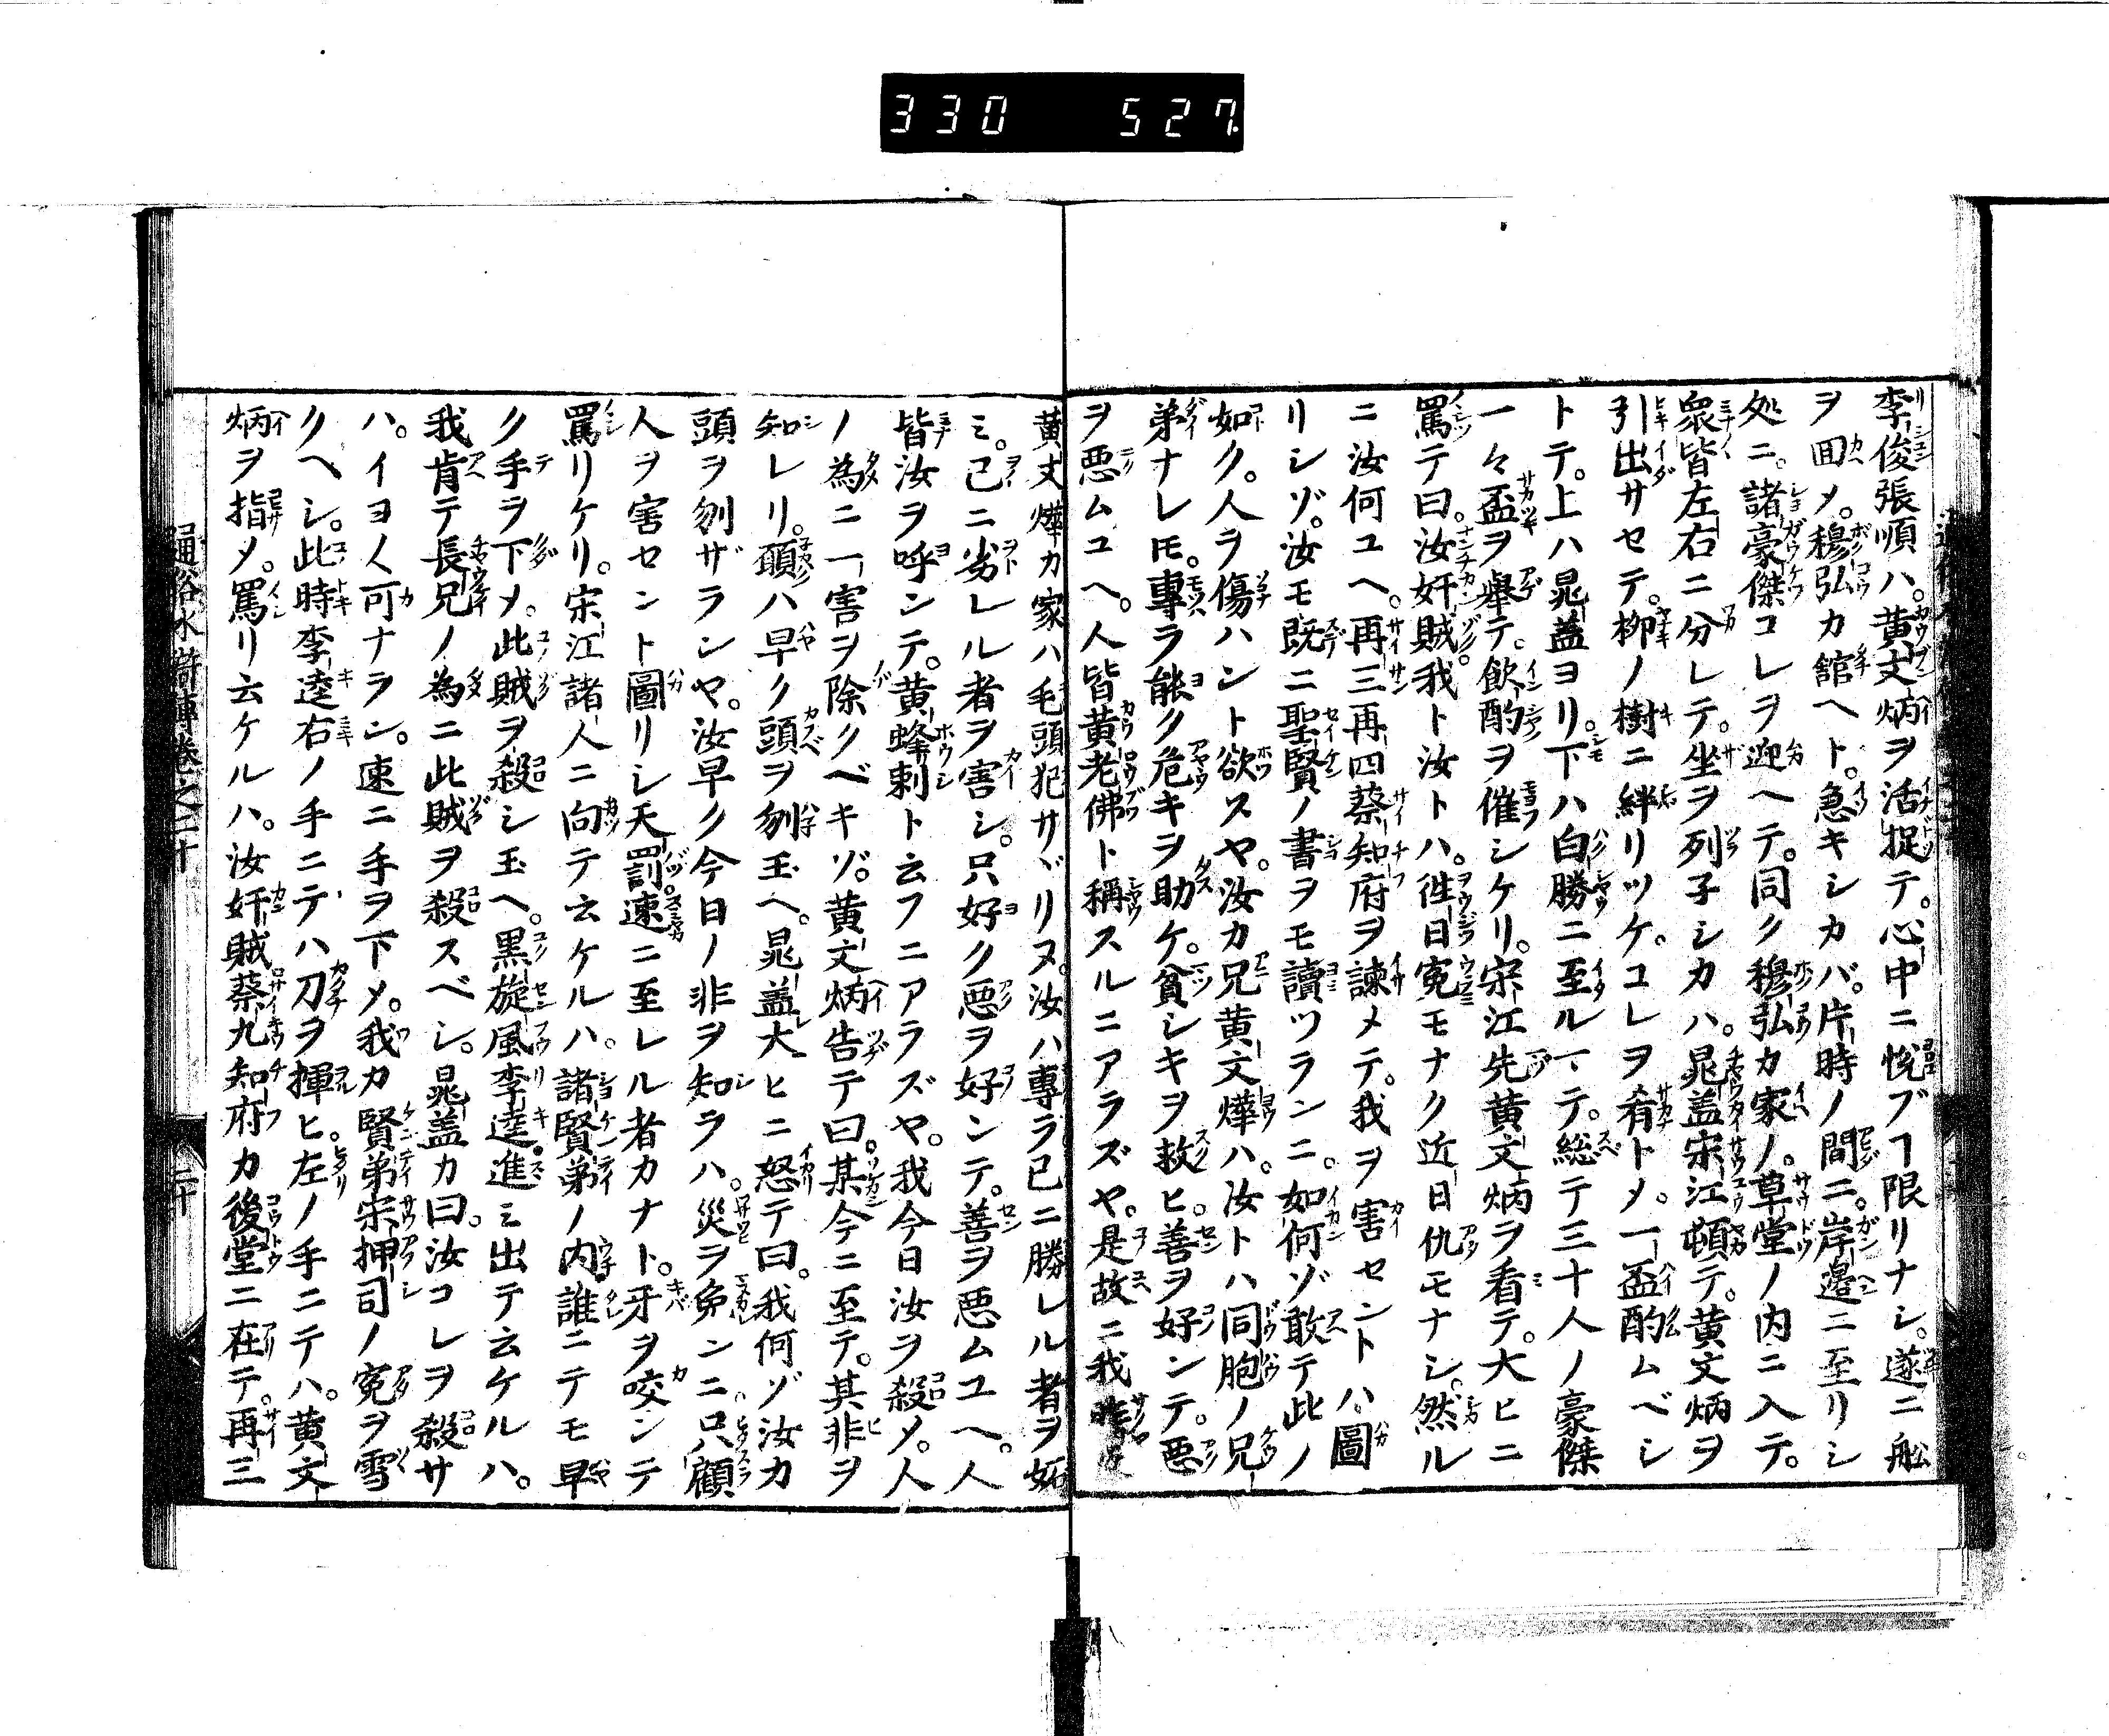 330 527
李俊張順ハ。黄文炳ヲ活捉テ。心中ニ悅ブヿ限リナシ。遂ニ舩
ヲ囬メ。穆弘カ舘ヘト。急キシカバ。片時ノ間ニ。岸邉ニ至リシ
処ニ。諸豪傑コレヲ迎ヘテ。同ク穆弘カ家ノ。草堂ノ内ニ入テ。
衆皆左右ニ分レテ。坐ヲ列子シカハ。晁盖宋江頓テ。黄文炳ヲ
引出サセテ。柳ノ樹ニ絆リツケ。コレヲ肴トメ。一盃酌ムベシ
トテ。上ハ晁盖ヨリ。下ハ白勝ニ至ルマテ。総テ三十人ノ豪傑
一々盃ヲ舉テ。飲酌ヲ催シケリ。宋江先黄文炳ヲ看テ。大ヒニ
罵テ曰。汝奸賊我ト汝トハ。徃日寃モナク近日仇モナシ。然ル
ニ汝何ユヘ。再三再四蔡知府ヲ諫メテ。我ヲ害セントハ圖
リシゾ。汝モ既ニ聖賢ノ書ヲモ讀ツランニ。如何ゾ敢テ此ノ
如ク。人ヲ傷ハント欲スヤ。汝カ兄黄文燁ハ。汝トハ同胞ノ兄
弟ナレ𪜈。專ラ能ク危キヲ助ケ。貧シキヲ救ヒ。善ヲ好ンテ。悪
ヲ悪ムユヘ。人皆黄老佛ト稱スルニアラズヤ。是故ニ我
黄文燁カ家ハ毛頭犯サヾリヌ。汝ハ專ラ已ニ勝レル者ヲ妬
ミ。已ニ劣レル者ヲ害シ。只好ク悪ヲ好ンテ。善ヲ悪ムユヘ。人
皆汝ヲ呼ンテ。黄蜂刺ト云フニアラズヤ。我今日汝ヲ殺メ。人
ノ為ニ一害ヲ除クベキゾ。黄文炳告テ曰。某今ニ至テ。其非ヲ
知レリ。願ハ早ク頭ヲ刎玉ヘ。晁盖大ヒニ怒テ曰。我何ゾ汝カ
頭ヲ刎ザランヤ。汝早ク今日ノ非ヲ知ラハ。災ヲ免ンニ。只顧
人ヲ害セント圖リシ天罰速ニ至レル者カナト。牙ヲ咬ンテ
罵リケリ。宋江諸人ニ向テ云ケルハ。諸賢弟ノ内誰ニテモ早
ク手ヲ下メ。此賊ヲ殺シ玉ヘ。黒旋風李逵進ミ出テ云ケルハ。
我肯テ長兄ノ為ニ此賊ヲ殺スベシ。晁盖カ曰。汝コレヲ殺サ
ハ。イヨ〱可ナラン。速ニ手ヲ下メ。我カ賢弟宋押司ノ寃ヲ雪
クヘシ。此時李逵右ノ手ニテハ刀ヲ揮ヒ。左ノ手ニテハ。黄文
炳ヲ指メ。罵リ云ケルハ。汝奸賊蔡九知府カ後堂ニ在テ。再三
通俗水滸傳卷之二十 二十